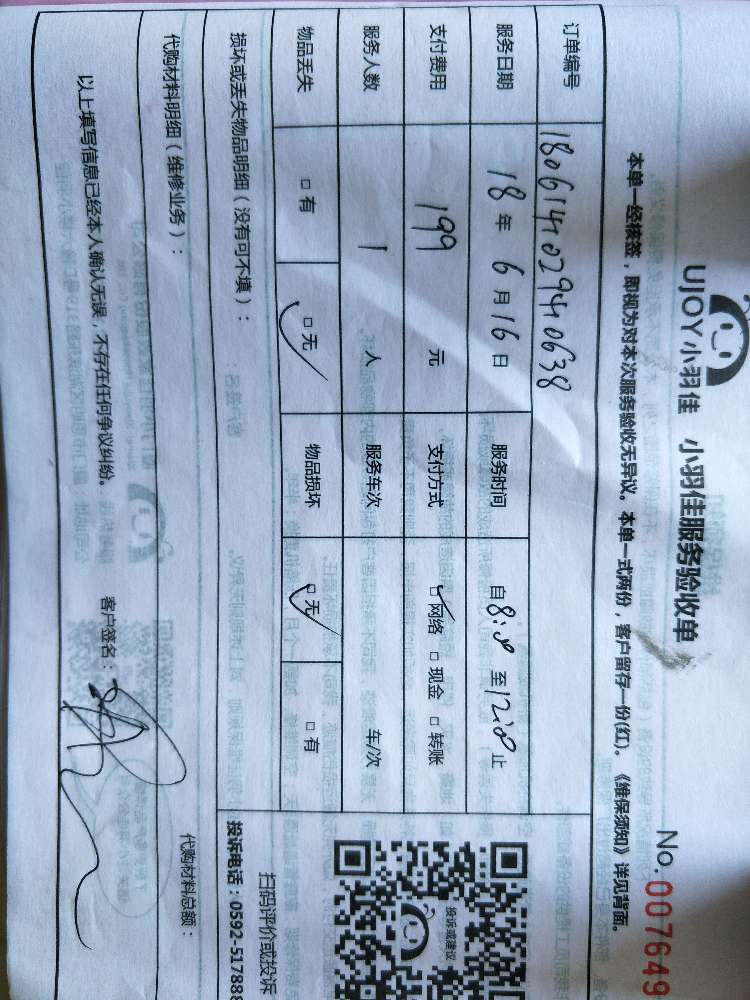 UJOY小羽佳 小羽佳服务验收单
No.007649
本单一经核签，即视为对本次服务验收无异议。本单一式两份，客户留存一份(红)。《维保须知》详见背面。
订单编号 180614102940638
服务日期 18年 6月16日 服务时间 自8:00 至12:00 止
支付费用 199 元 支付方式 □网络 □现金 □转账
服务人数 1 人 服务车次 车/次
物品丢失 □有 □无 物品损坏 □无 □有
损坏或丢失物品明细（没有可不填）：
代购材料明细（维修业务）：
代购材料总额：
以上填写信息已经本人确认无误，不存在任何争议纠纷。
客户签名：
投诉或建议
扫码评价或投诉
投诉电话：0592-517888